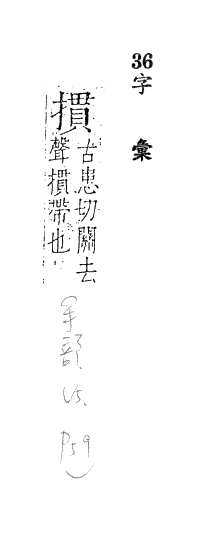 36
字彙
摜
古患切關去
聲摜帶也
手部
V5.
P59